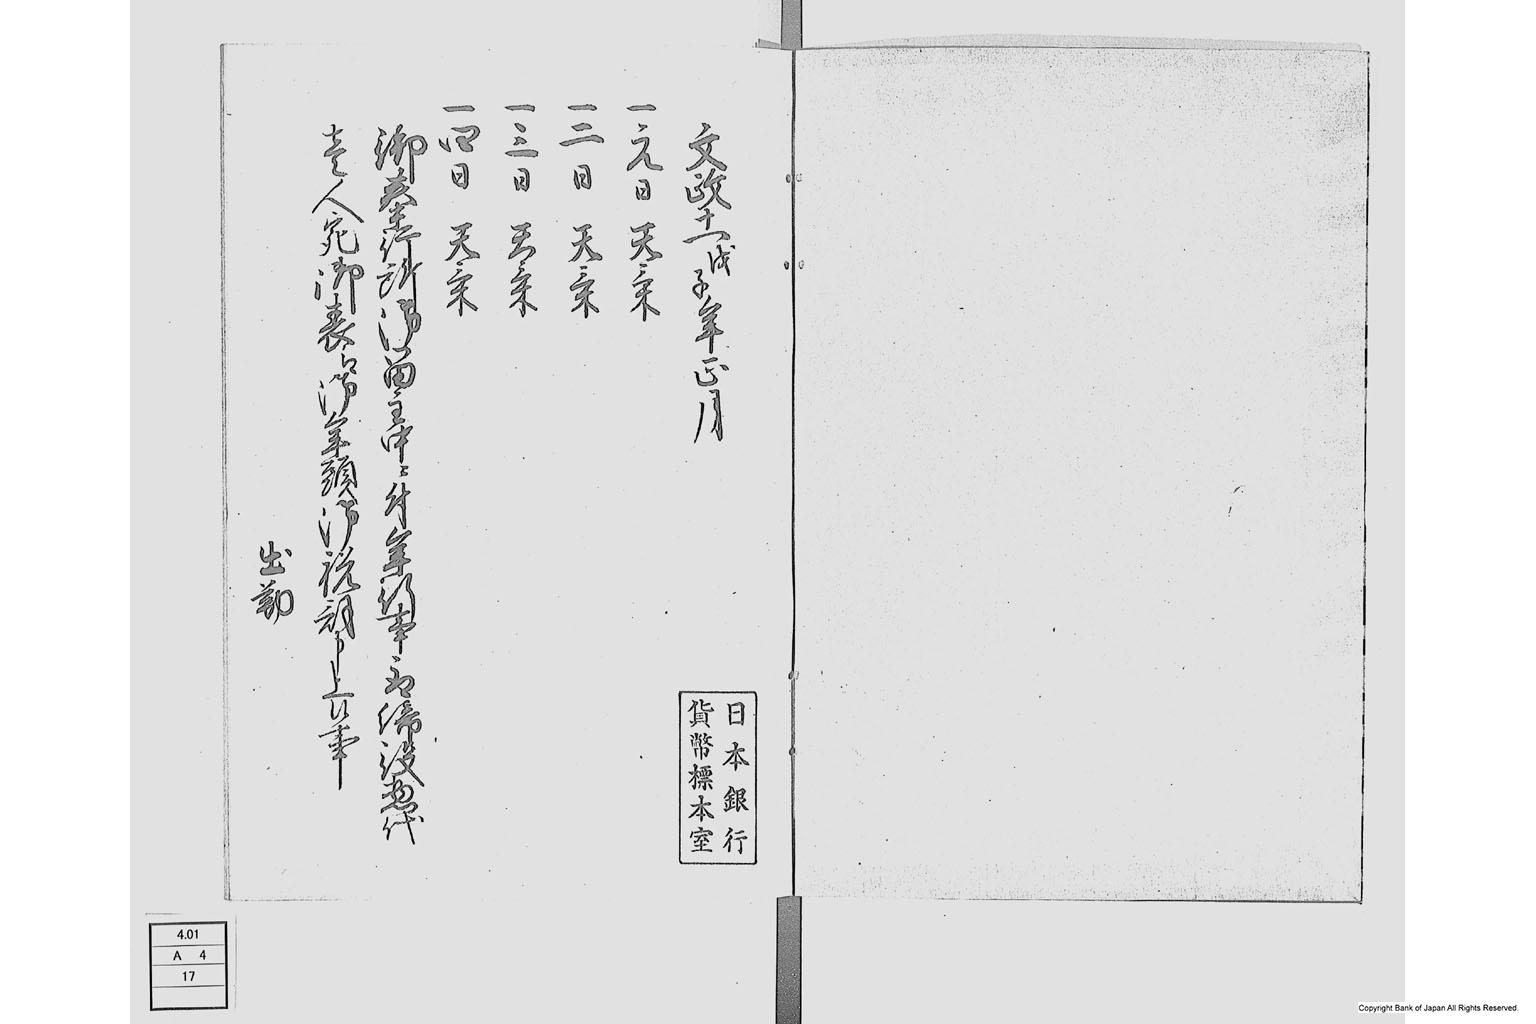 文政十一戊子年正月
一元日 天気
一二日 天気
一三日 天気
一四日 天気
御奉行所御留主中ニ付年行事取締役惣代
壱人宛御表江御年頭御祝詞申上候事
出勤
日本銀行
貨幣標本室
4.01
A 4
17
Copyright Bank of Japan All Rights Reserved.